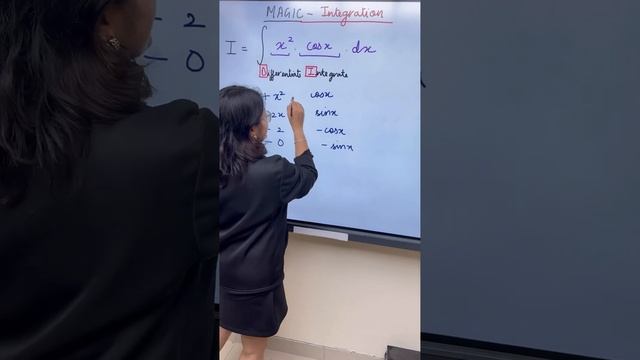 MAGIC - Integration
I = ∫ x² · cosx · dx
Differentiate Integrate
+ x² cosx
2x sinx
- 2 - cosx
- 0 - sinx